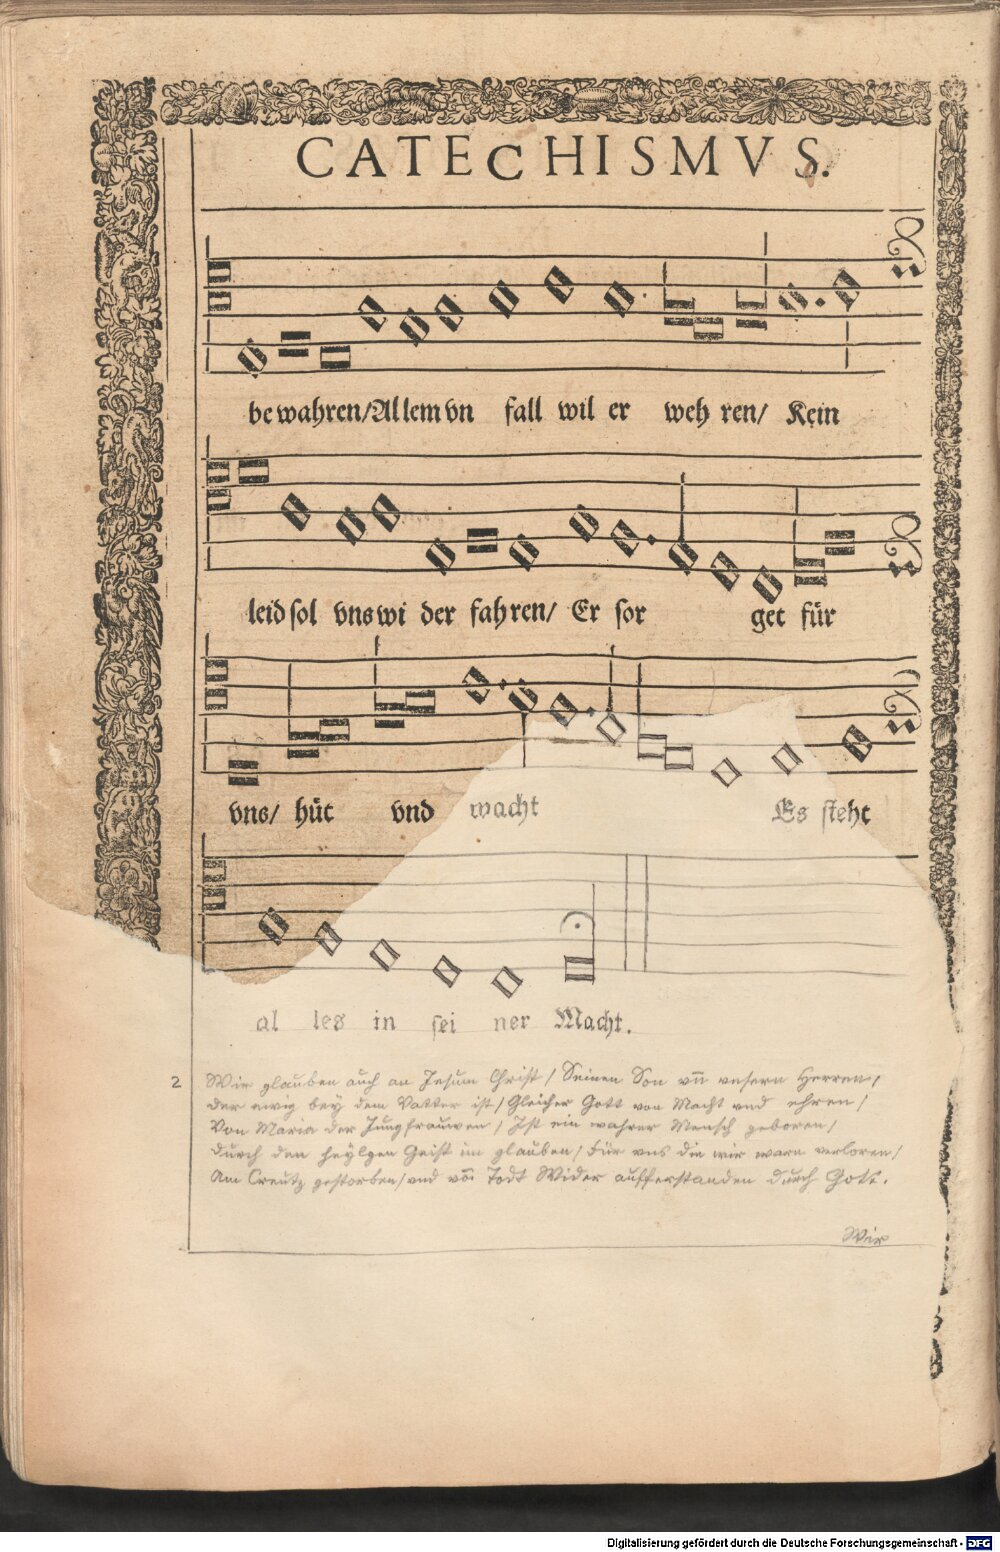 CATECHISMVS.
be wahren/Allem vn fall wil er weh ren/ Kein
leid sol vns wi der fahren/ Er sor get für
vns/ hüt vnd wacht Es steht
al les in sei ner Macht.
2 Wir glauben auch an Jesum Christ/ Seinen Son vn̄ vnsern Herren/
der ewig bey dem Vatter ist/ Gleicher Gott von Macht vnd ehren/
Von Maria der Jungfrauwen/ Ist ein wahrer Mensch geboren/
durch den heylgen Geist im glauben/ Für vns die wir warn verloren/
Am Creutz gestorben/ vnd võ Todt Wider aufferstanden durch Gott.
Wir
Digitalisierung gefördert durch die Deutsche Forschungsgemeinschaft - DFG